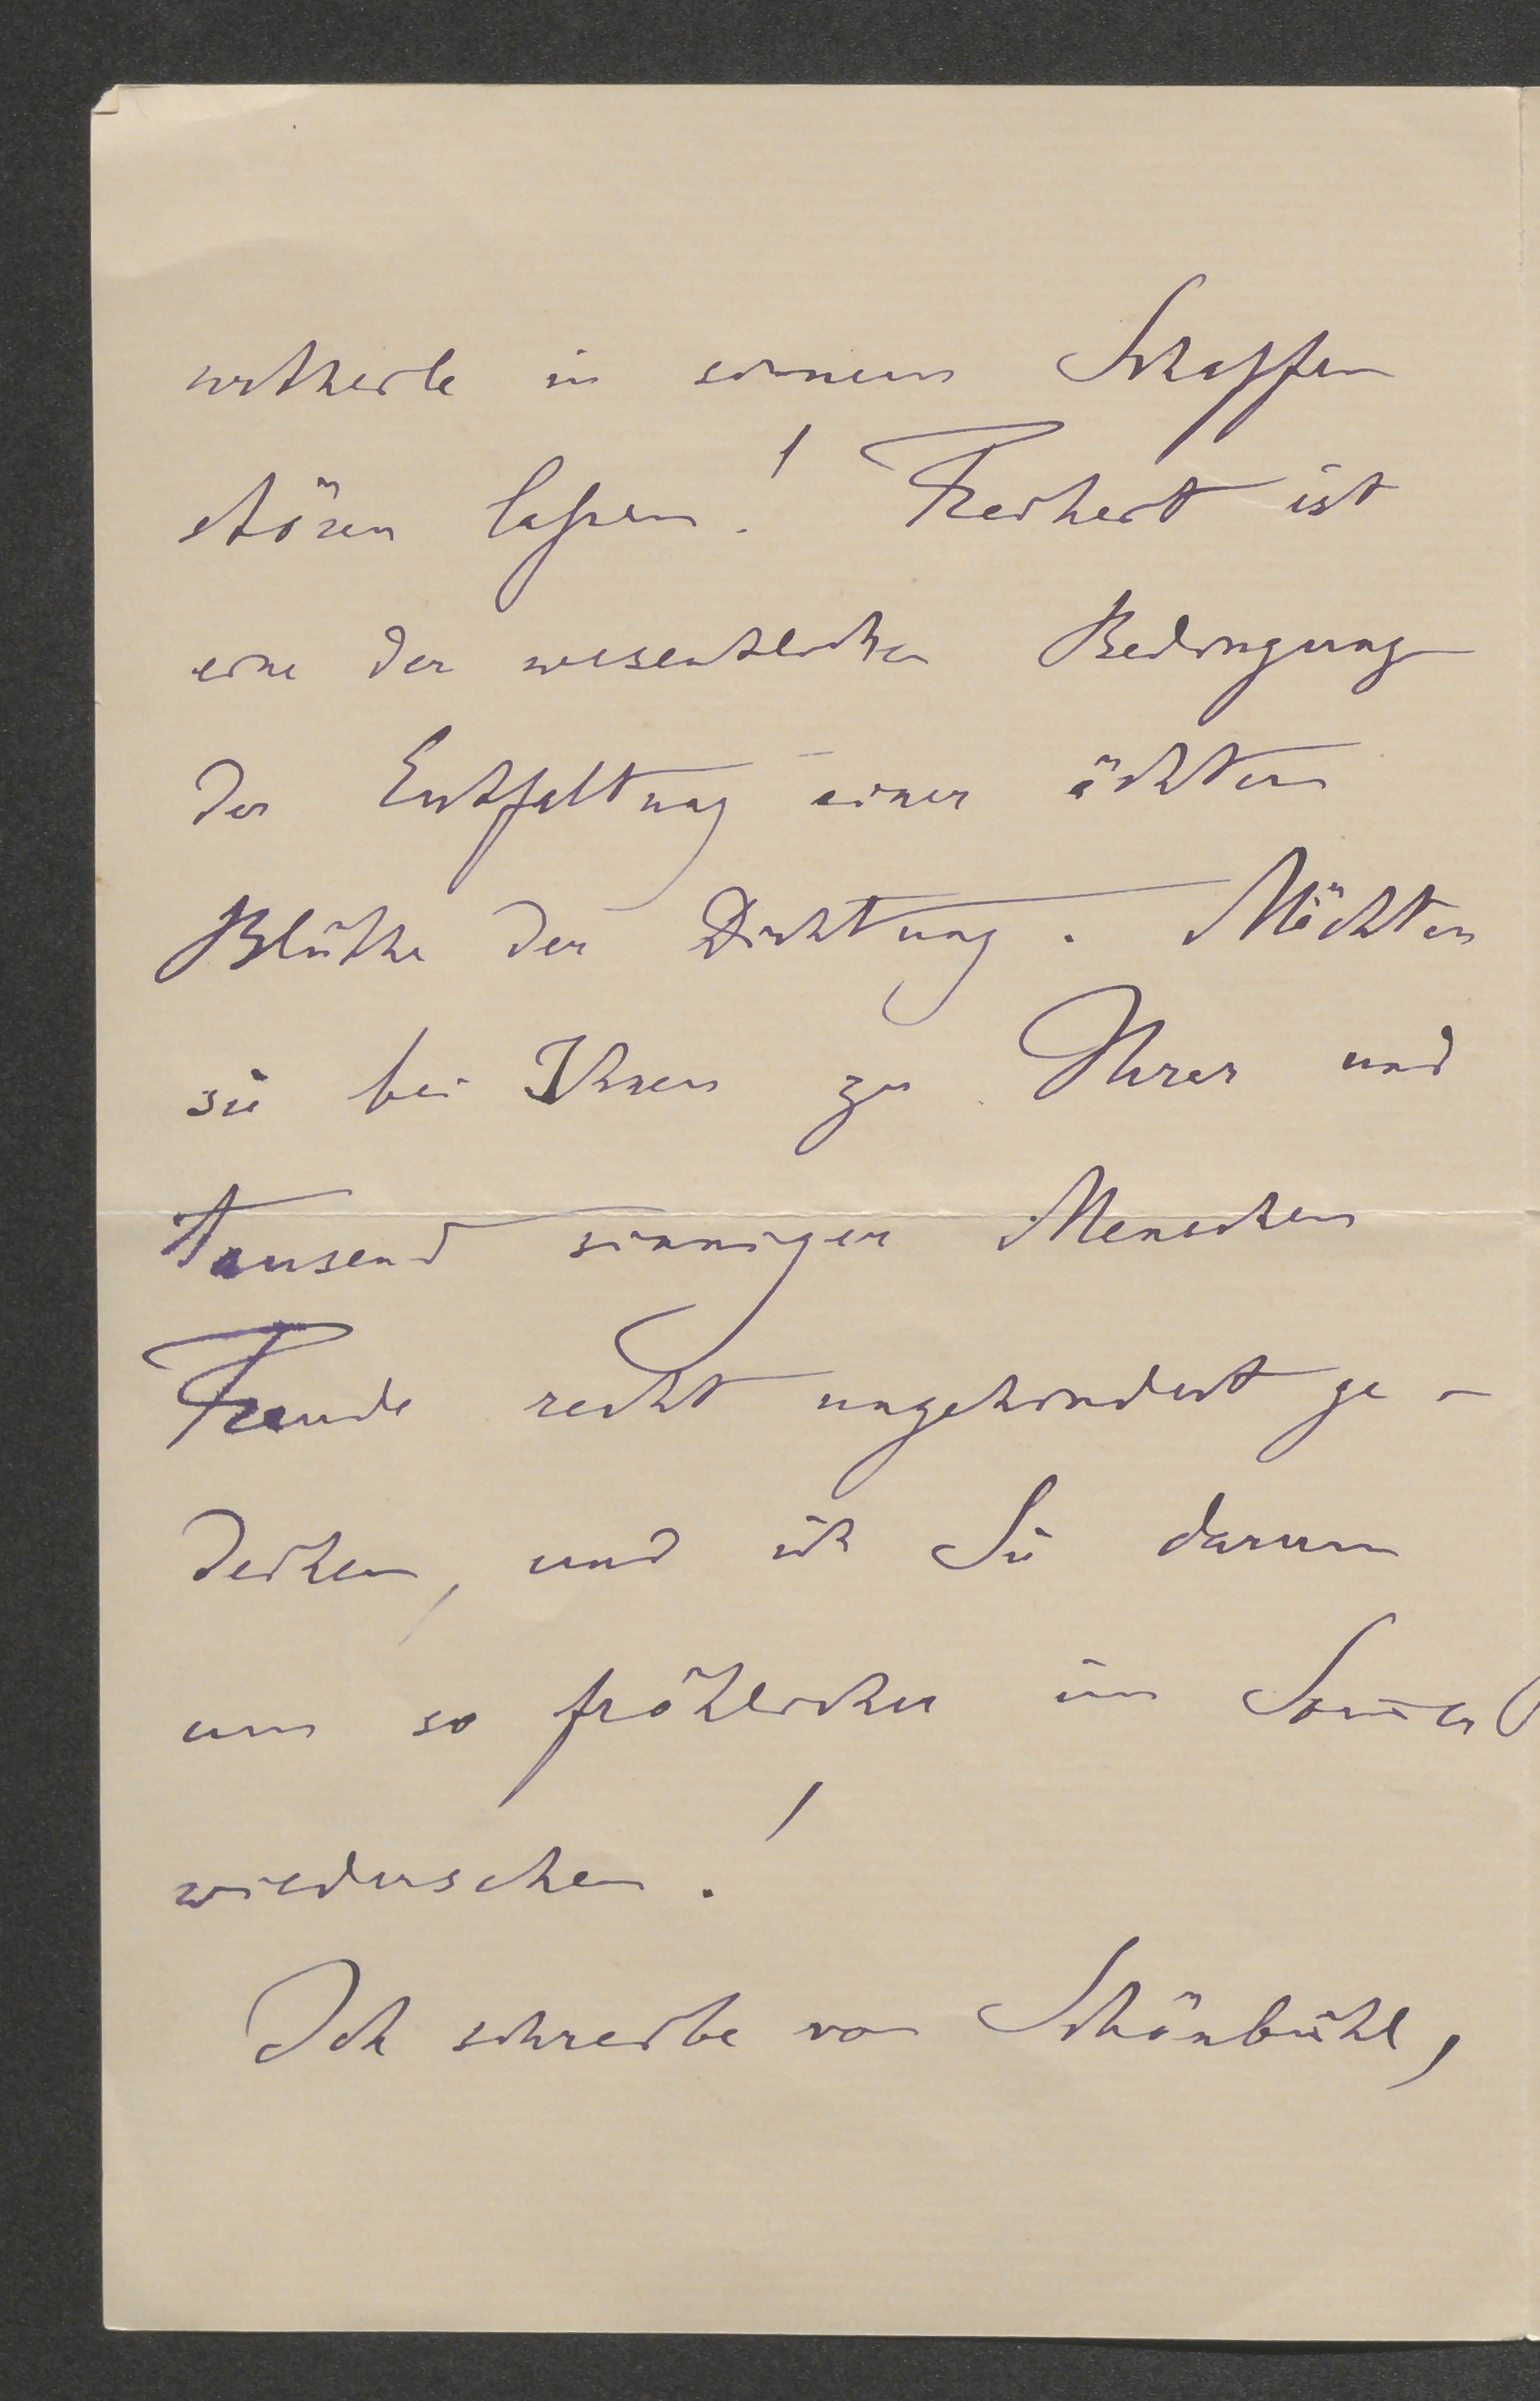 urtheile in seinem Schaffen
stören laßen! Freiheit ist
eine der wesentlichen Bedingung
der Entfaltung einer ächten
Blüthe der Dichtung. Möchten
sie bei Ihnen zu Ihrer und
Tausend sinniger Menschen
Freude recht ungehindert ge-
deihen, und ich Sie darum
um so fröhlicher im
wiedersehen!
Ich schreibe von Schönbühl,